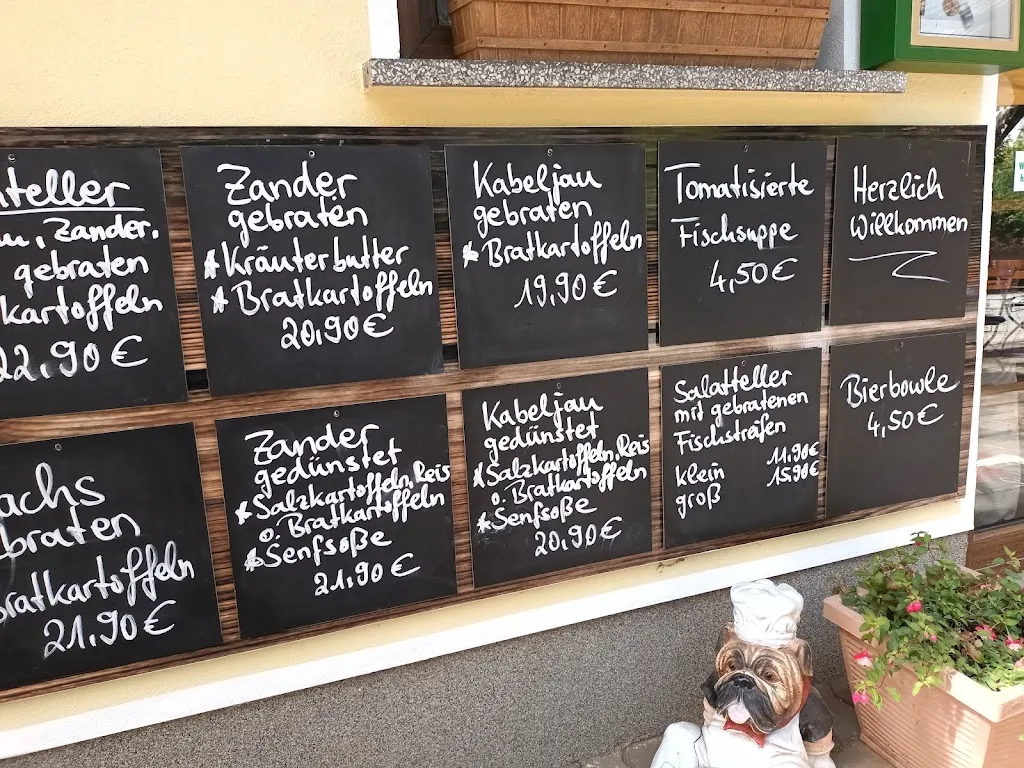 teller
, Zander,
gebraten
kartoffeln
22,90 €
Zander
gebraten
* Kräuterbutter
* Bratkartoffeln
20,90 €
Kabeljau
gebraten
* Bratkartoffeln
19,90 €
Tomatisierte
Fischsuppe
4,50 €
Herzlich
Willkommen
achs
braten
Bratkartoffeln
21,90 €
Zander
gedünstet
* Salzkartoffeln, Reis
o. Bratkartoffeln
* Senfsoße
21,90 €
Kabeljau
gedünstet
* Salzkartoffeln, Reis
o. Bratkartoffeln
* Senfsoße
20,90 €
Salatteller
mit gebratenen
Fischstreifen
klein 11,90€
groß 15,90€
Bierbowle
4,50 €